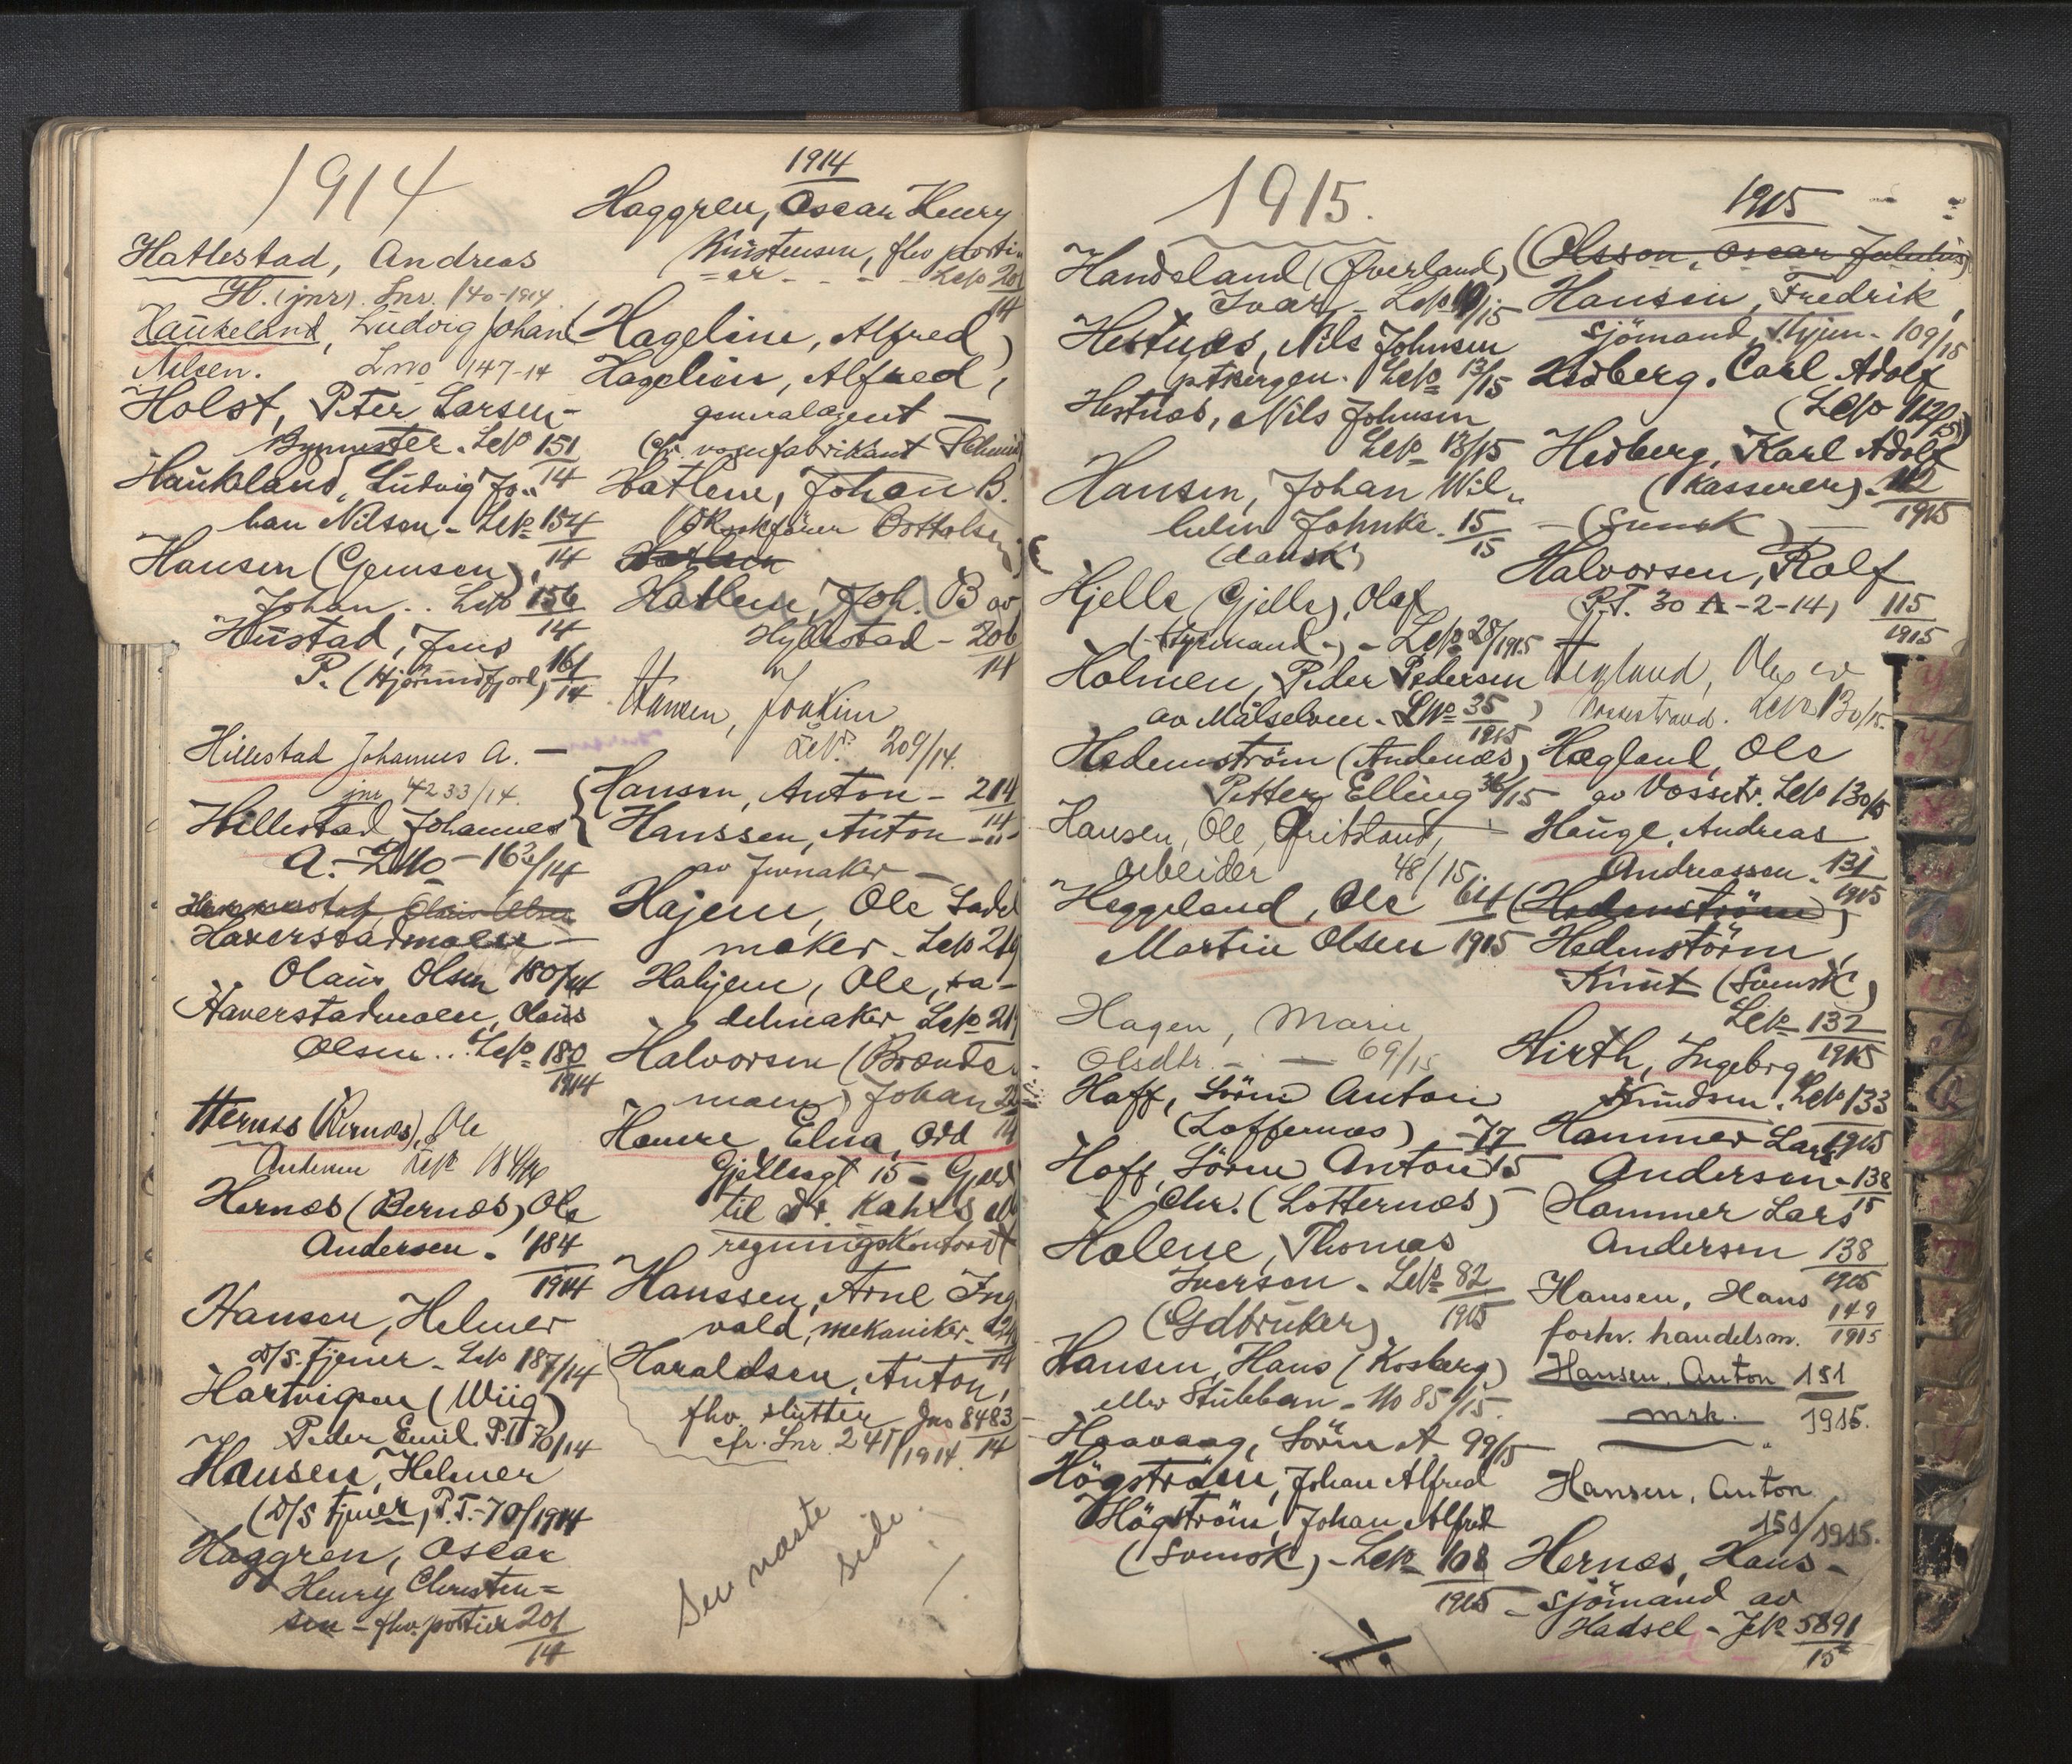 1914
Hatlestad, Andreas
H. (jnr). Lnr. 140-1914
Haukeland, Ludvig Johan
Nilsen. Lno 147-14
Holst, Peter Larsen -
Bymester. Lep 151
14
Haukland, Ludvig Jo„
han Nilsen - Lep 154
14
Hansen (Gemsen),
Johan .. Lep 156
14
Hustad, Jens
P. (Hjörundfjord) 161
14
Hillestad Johannes A. -
jnr 4233/14.
Hillestad, Johannes
A. - LNo - 163/14
Haverstadmoen -
Olaus Olsen 180/14
Haverstadmoen, Olaus
Olsen .. Lep 180
1914
Hernæs (Bernæs), Ole
Andersen Lep 184
Hernæs (Bernæs) Ole
Andersen - 184
1914
Hansen, Helmer
d/s. tjener - Lep 187/14
Hartvigsen (Wiig)
Peder Emil. P.T 70/14
Hansen, Helmer
(D/S tjener, P.T. - 70/1914
Haggren, Oscar
Henry Christen=
sen - fhv. portier 201
14
1914
Haggren, Oscar Henry
Kristensen, fhv porti„
=er - - - Lep 201
14
Hageline, Alfred
Hagelien, Alfred,
generalagent -
(cfr. vognfabrikant Schmidt
Hatlem, Johan B.
Hatlem, Joh. B av
Hyllestad - 206
14
Hansen, Joakim
LeP. 209/14.
Hansen, Anton - 214
14
Hanssen, Anton - „ -
av Jevnaker -
Hajem, Ole Sadel
maker - Lep 219
Hahjem, Ole, sa-
delmaker Lep 219
Halvorsen (Brænde„
moen) Johan
Hauge, Elna, Odd
Gjellesgt 15 - Gjeld
til dr. Kahrs
regningskontoret
Hanssen, Arne Ing
vald, mekaniker -
14
Haraldsen, Anton,
fhv. slutter Jno 8483
14
cfr. Lnr. 245/1914
Sev næste
side.
1915.
Handeland (Överland)
Ivar - Lep 10/15
Hestnæs, Nils Johnsen
pt Bergen. Lep 13/15
Hestnæs, Nils Johnsen
Lep 13/15
Hansen, Johan Wil„
helm Johnke. 15
15
(dansk)
Hjelle (Gjelle), Olaf
(Styrmand -) - Lep 28/1915
Holmen, Peder Pedersen
av Målselven - LNo 35
1915
Hedemström (Andenæs)
Petter Elling 36/15
Hansen, Ole, Fritstand,
arbeider 48/15
Heggeland, Ole 64
Martin Olsen 1915
Hagen, Marie
Olsdtr. - - 69/15
Hoff, Sören Anton
(Loffernæs) - 77
15
Hoff, Sören Anton
Chr. (Lotternæs)
Holene, Thomas
Iverson - Lep 82
1915
(Gdbruker)
Hansen, Hans (Kosberg)
eller Stubban - No 85/15.
Haavaag, Sören A 99/15
Högström, Johan Alfred
Högström, Johan Alfred
(Svensk) - Lep 108
1915
1915
(Olsson, Oscar Julius)
Hansen, Fredrik,
sjömand, Skjen - 109/15
Hedberg, Carl Adolf
(Lep 112/15)
Hedberg, Karl Adolf
(Kasserer) - 112
1915
- (Svensk) -
Halvorsen, Rolf
(P.T. 30 A - 2-14) 115
1915
Hegland, Ole av
Vossestrand. Lep 130/15.
Hægland, Ole
av Vossestr. Lep 130/15
Hauge, Andreas
Andreassen - 131
1915
(Hedemström)
Hedmstörm,
Knut (Svensk)
Lep 132
1915
Hirth, Ingebrg
Knudsen. Lep 133
1915
Hammer Lars
Andersen - 138
15
Hammer Lars
Andersen 138
1915
Hansen, Hans 149
1915
forhv. handelsm.
Hansen, Anton 151
1915.
mrk.
Hansen, Anton
151/1915.
Hernæs, Hans -
- sjömand av
Hadsel - Jep 5891
15